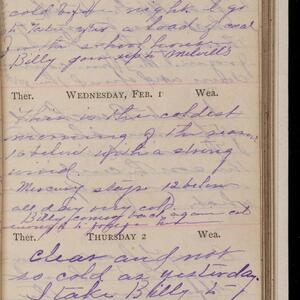 cold night I go
to take after a load of coal
for the school house
Billy goes up to Melvill's
Ther. Wednesday, Feb. 1 Wea.
This is the coldest
morning of the year
10 below with a strong
wind.
Mercury stays 12 below
all day very cold
Billy comes back again eat
Ther. Thursday 2 Wea.
Clear and not
so cold as yesterday.
I take Billy to